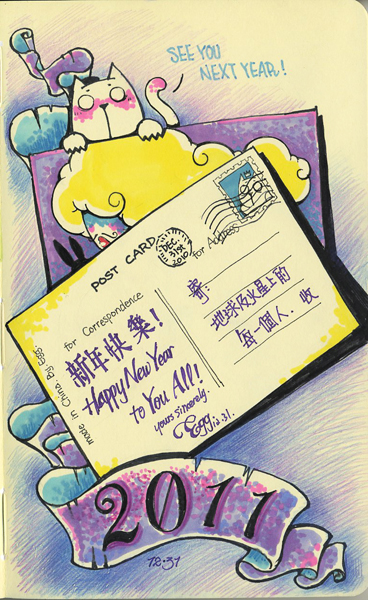 SEE YOU
NEXT YEAR!
POST CARD
DEC.
31st
2010
for Address
for Correspondence
made in China By Egg.
新年快樂!
Happy New Year
to You All!
yours sincerely.
Egg 12.31.
寄:
地球及火星上的
每一個人. 收
2011
12·31